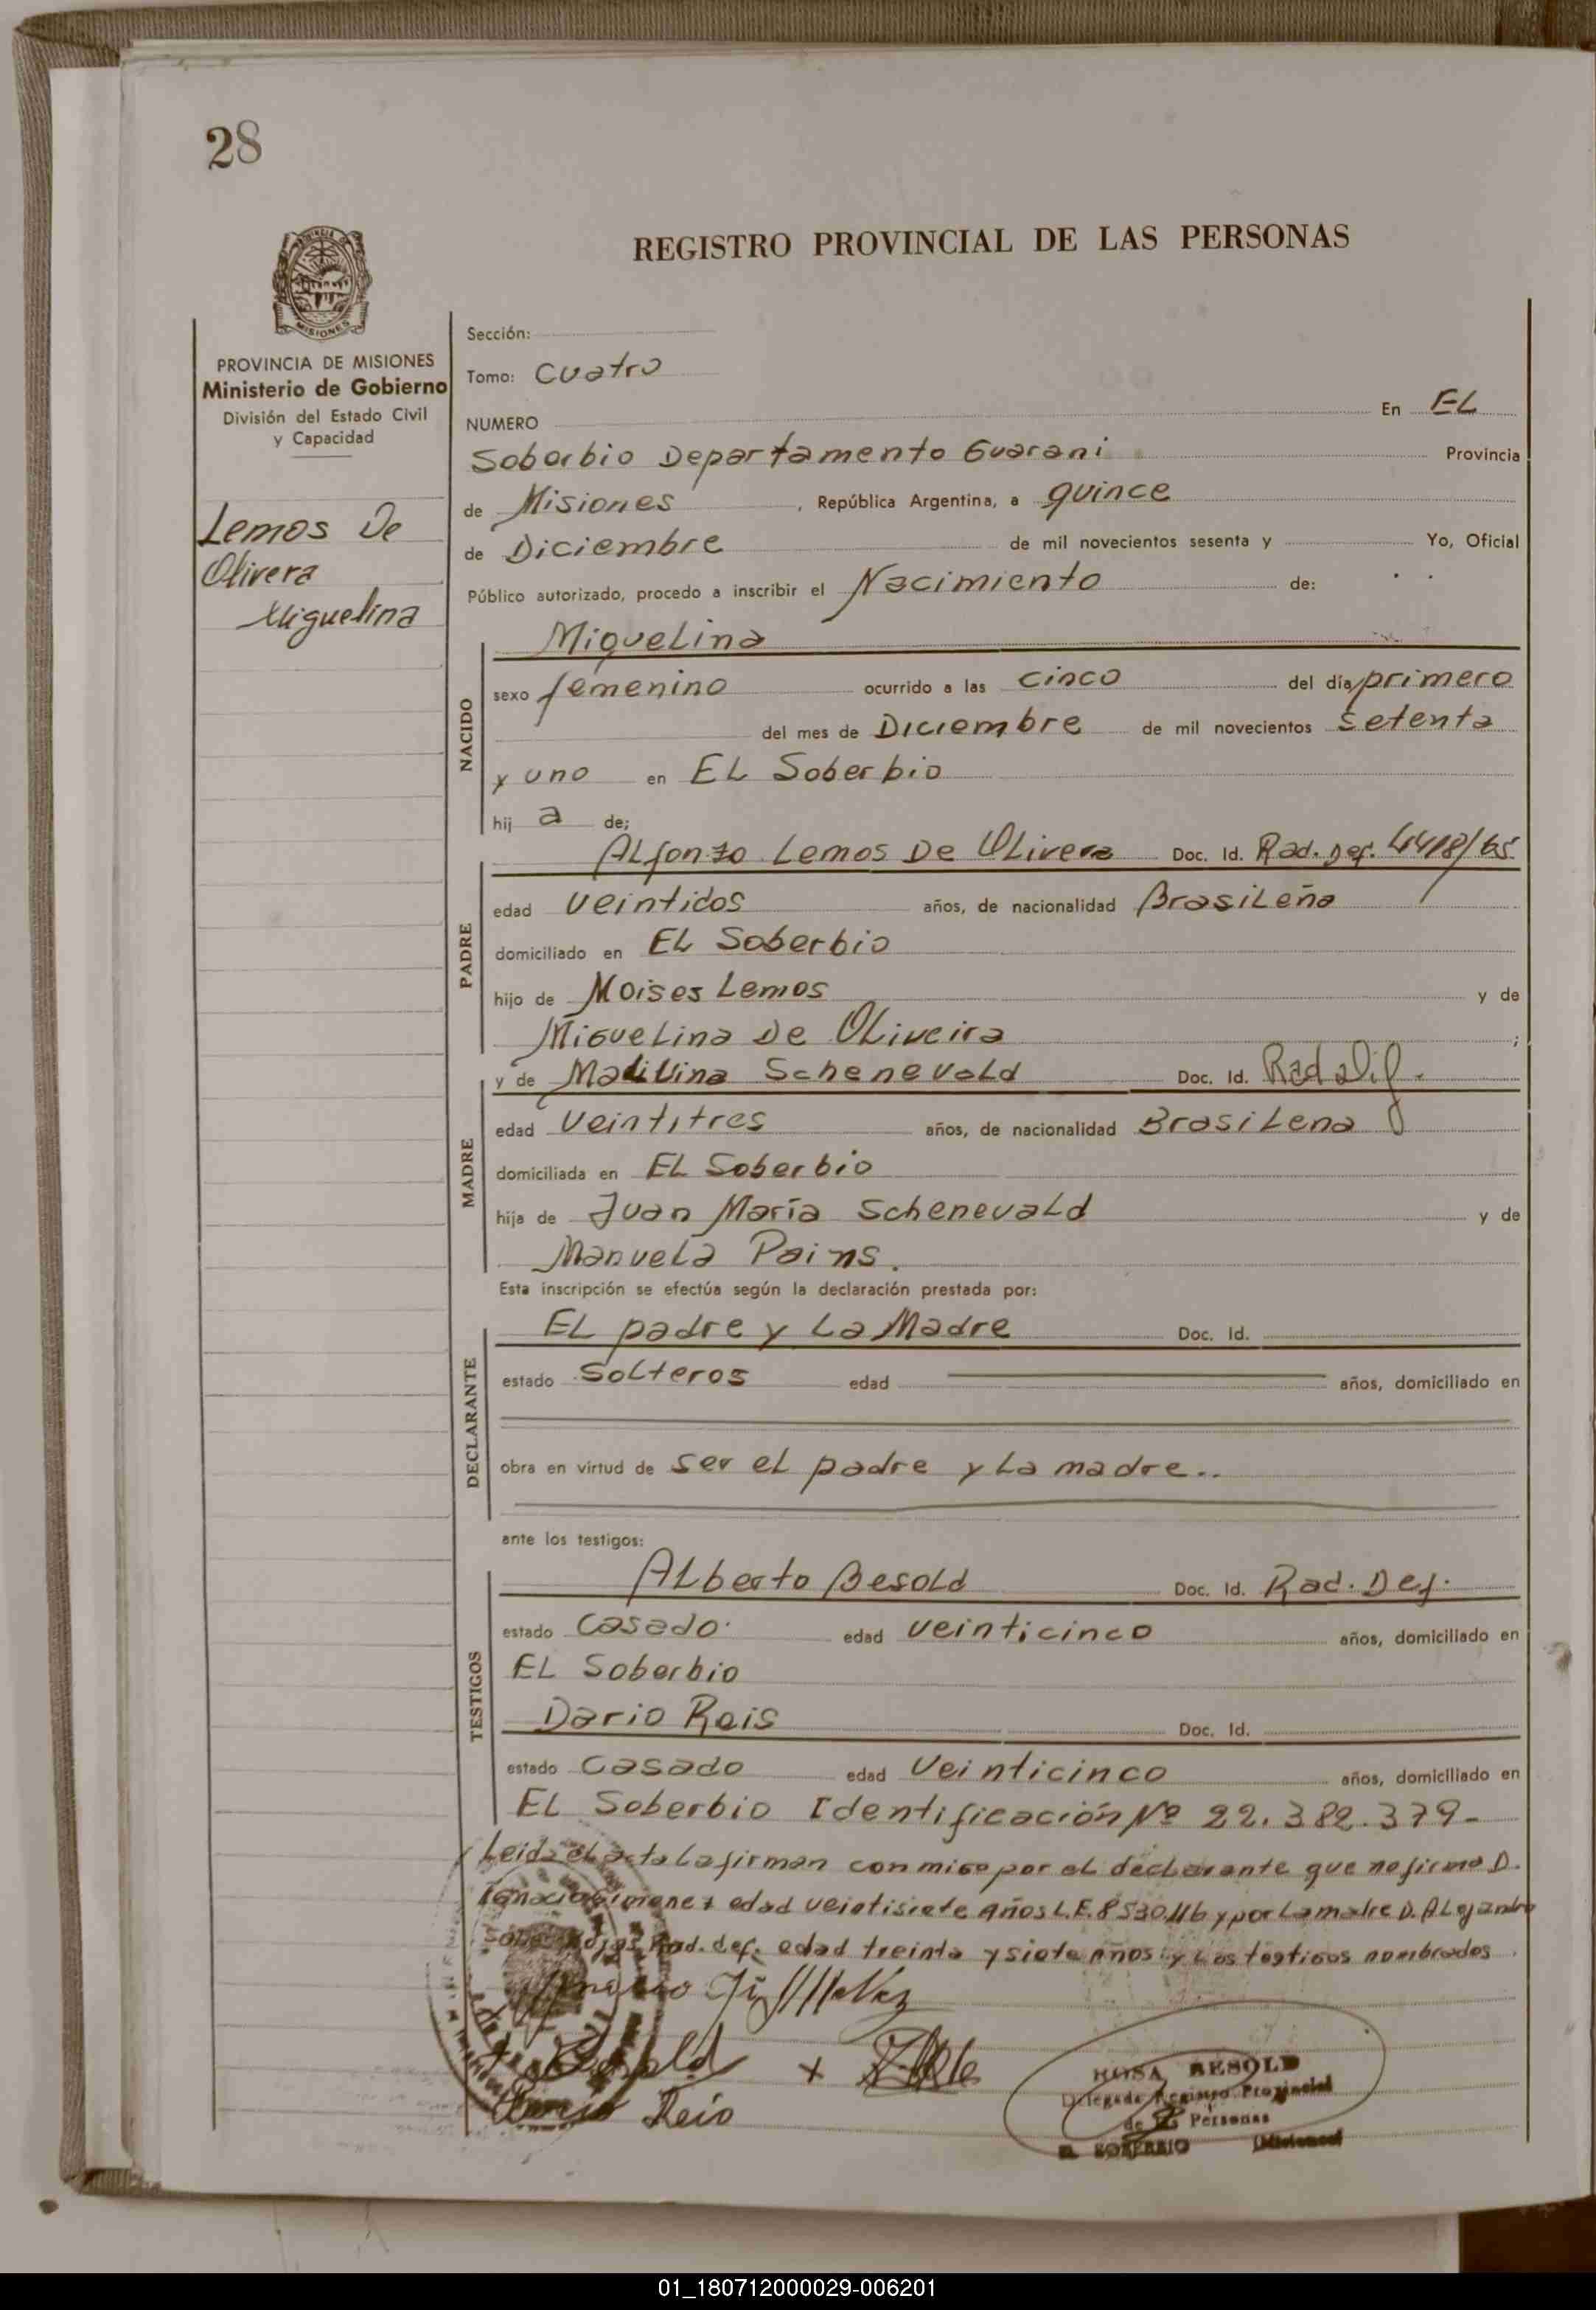 28
REGISTRO PROVINCIAL DE LAS PERSONAS
MISIONES
PROVINCIA DE MISIONES
Ministerio de Gobierno
División del Estado Civil
y Capacidad
Lemos De
Olivera
Miguelina
Sección:
Tomo: Cuatro
NUMERO En EL
Soberbio Departamento Guarani Provincia
de Misiones , República Argentina, a quince
de Diciembre de mil novecientos sesenta y Yo, Oficial
Público autorizado, procedo a inscribir el Nacimiento de:
NACIDO
Miguelina
sexo femenino ocurrido a las cinco del día primero
del mes de Diciembre de mil novecientos setenta
y uno en EL Soberbio
hij a de;
PADRE
ALfonzo Lemos De OLivera Doc. Id. Rad. Def. 4418/65
edad veintidos años, de nacionalidad BrasiLeña
domiciliado en EL Soberbio
hijo de Moises Lemos y de
MigueLina De OLiveira ;
MADRE
y de Schenevald Doc. Id. Rad
edad veintitres años, de nacionalidad BrasiLena
domiciliada en EL Soberbio
hija de Juan María SchenevaLd y de
ManueLa Pains.
Esta inscripción se efectúa según la declaración prestada por:
DECLARANTE
EL padre y La Madre Doc. Id.
estado SoLteros edad años, domiciliado en
obra en virtud de ser eL padre y La madre..
ante los testigos:
TESTIGOS
ALberto BesoLd Doc. Id. Rad. Def.
estado Casado edad veinticinco años, domiciliado en
EL Soberbio
Dario Reis Doc. Id.
estado Casado edad Veinticinco años, domiciliado en
EL Soberbio Identificación Nº 22.382.379-
Leida el acta La firman con migo por el declarante que no firma D.
Ignacio Gimenez edad veintisiete Años L.E. 8530116 y por La madre D. ALejandro
Rojas Rad. def. edad treinta y siete Años y Los testigos nombrados
Besold x
Reis
ROSA BESOLD
Delegada Registro Provincial
de las Personas
EL SOBERBIO (Misiones)
01_180712000029-006201